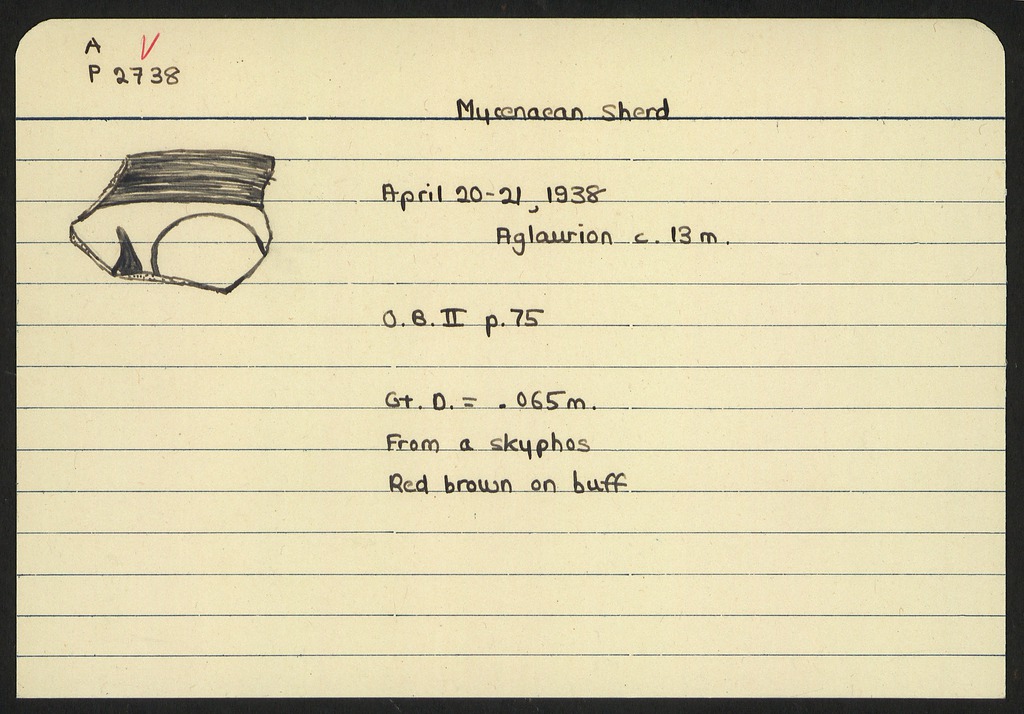 A
P 2738
Mycenaean Sherd
April 20-21, 1938
Aglaurion c. 13 m.
O.B. II p. 75
Gt. D. = .065 m.
From a skyphos
Red brown on buff